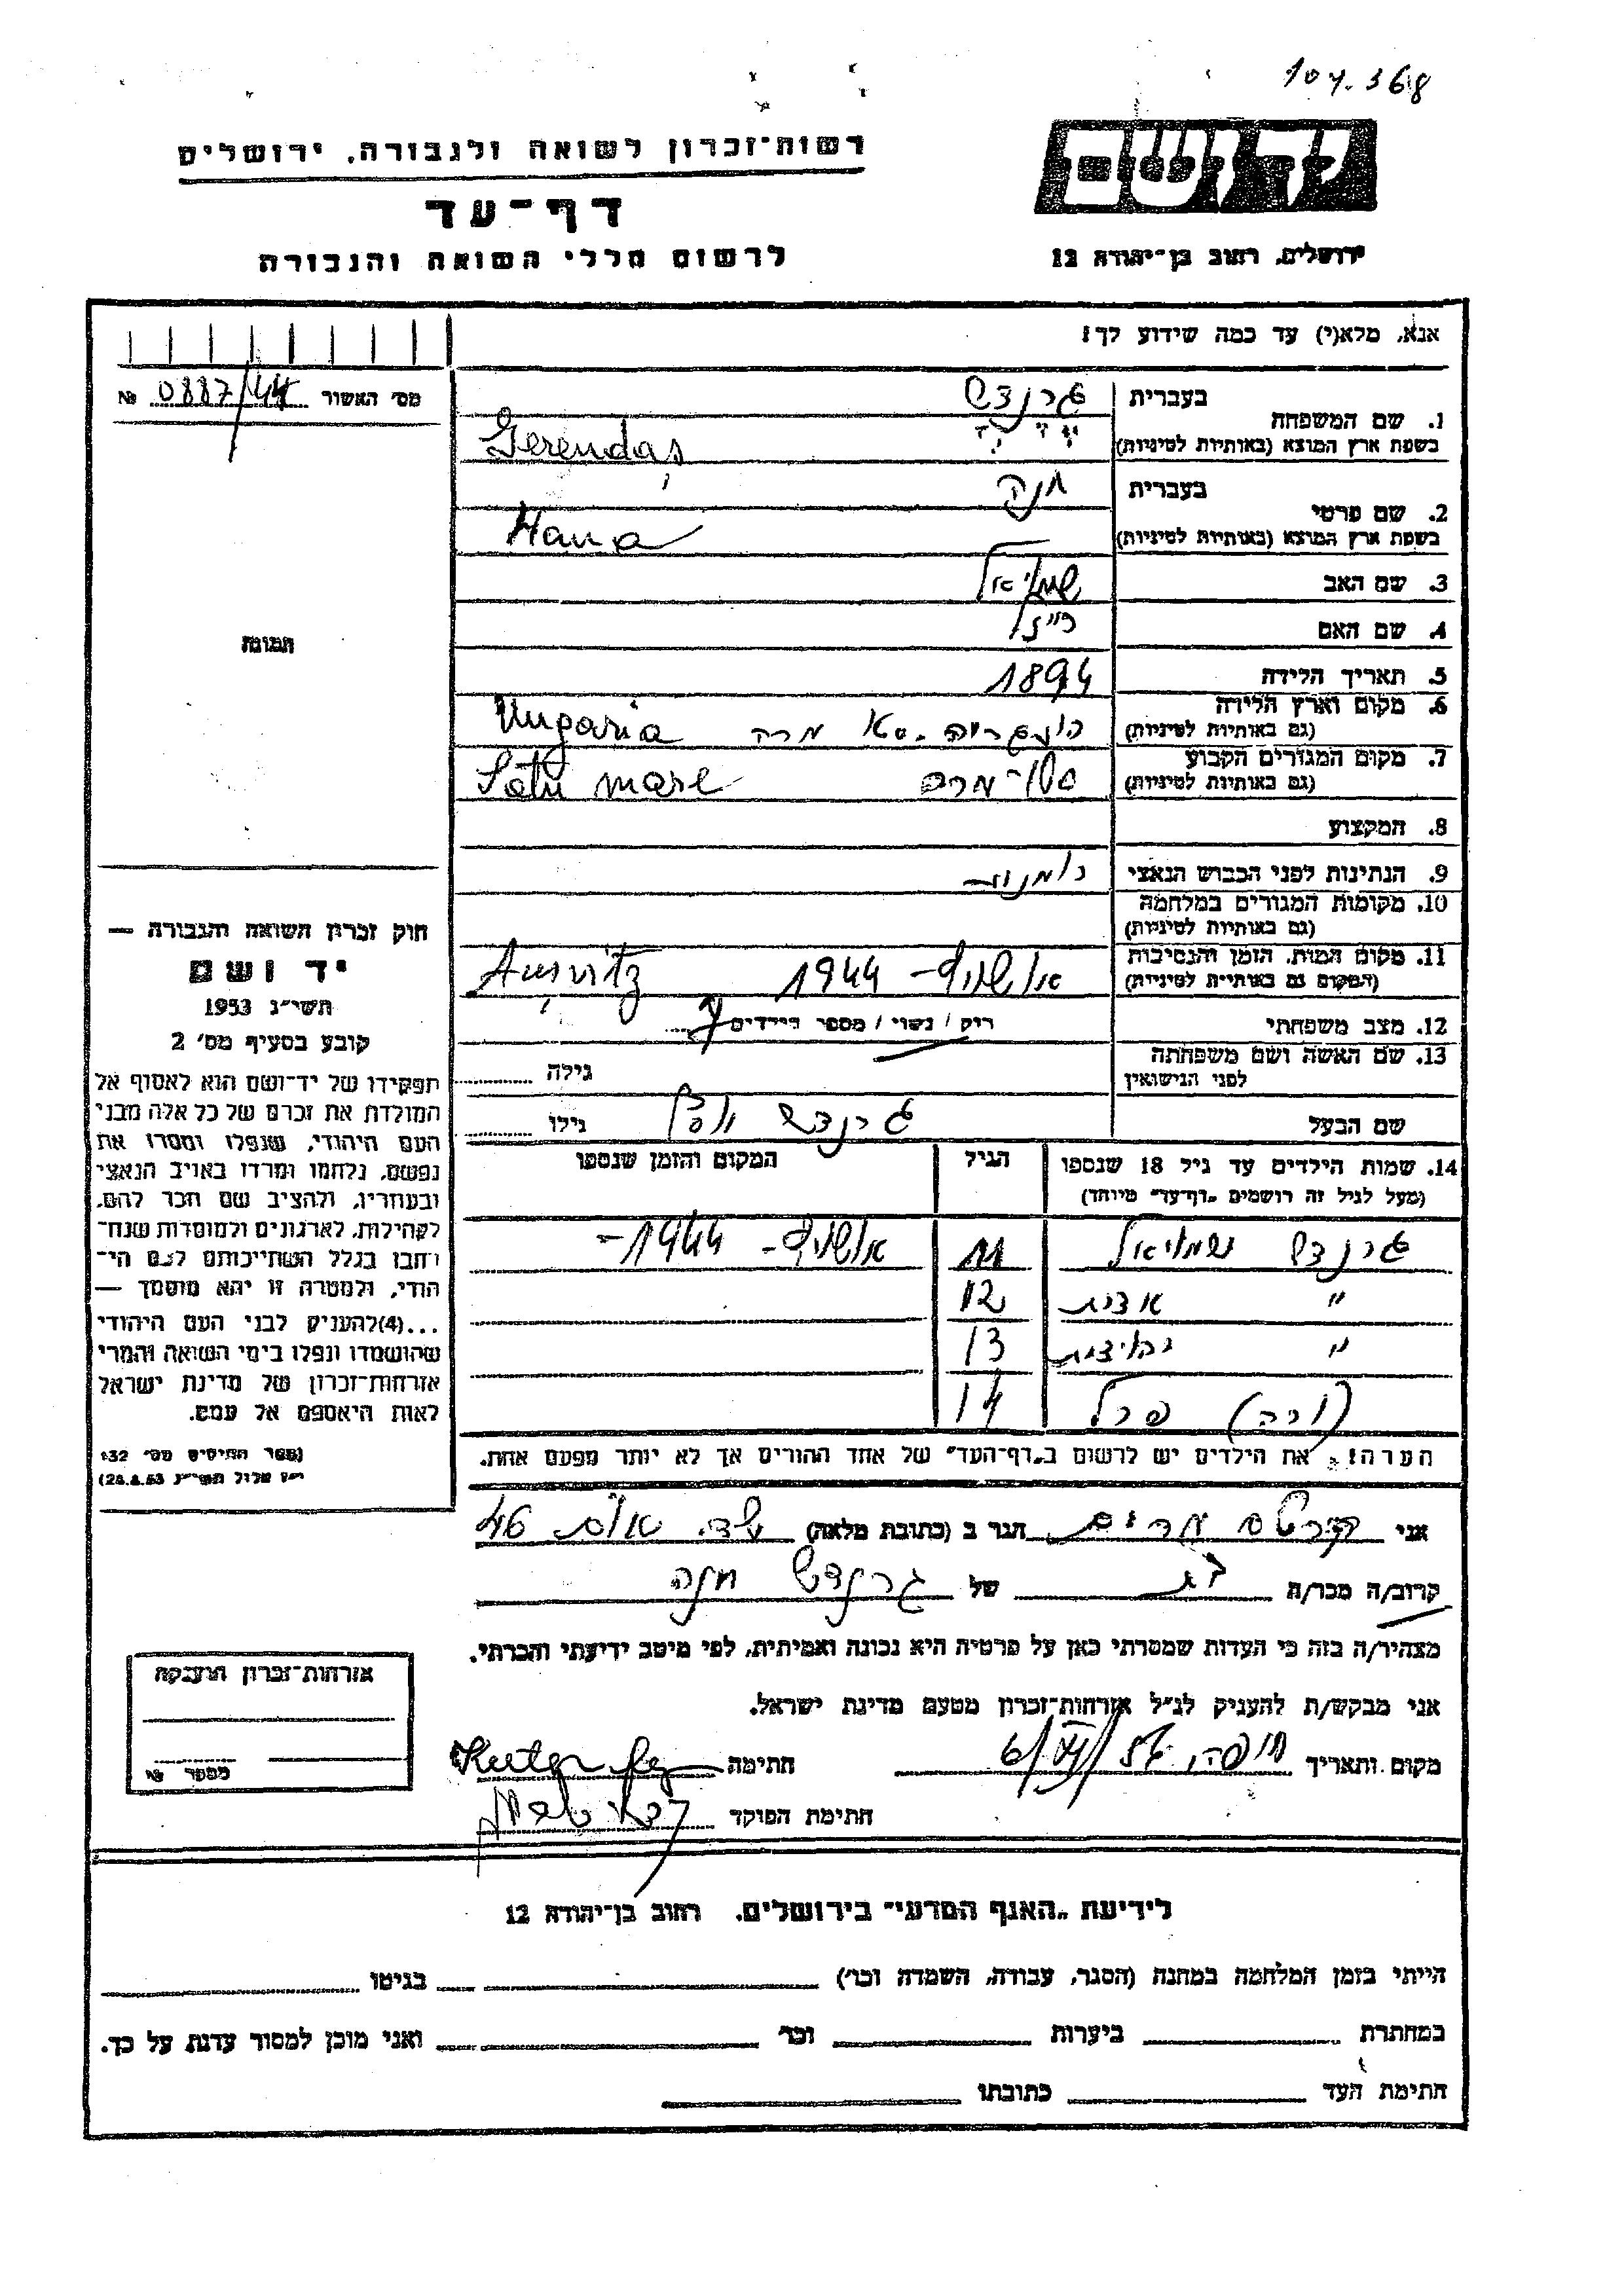 107.368
רשות־זכרון לשואה ולגבורה, ירושלים
דף־עד
לרשום חללי השואה והגבורה
יד ושם
ירושלים, רחוב בן־יהודה 12
אנא, מלא(י) עד כמה שידוע לך!
מס׳ האשור 0887/44 №
1. שם המשפחה בעברית גרנדש
בשפת ארץ המוצא (באותיות לטיניות) Gerendaş
2. שם פרטי בעברית חנה
בשפת ארץ המוצא (באותיות לטיניות) Hana
3. שם האב שמואל
4. שם האם
5. תאריך הלידה 1894
6. מקום וארץ הלידה
(גם באותיות לטיניות) הונגריה. מרה Ungaria
7. מקום המגורים הקבוע
(גם באותיות לטיניות) סטו־מרה Satu mare
8. המקצוע
9. הנתינות לפני הכבוש הנאצי
10. מקומות המגורים במלחמה
(גם באותיות לטיניות)
11. מקום המות, הזמן והנסיבות
(המקום גם באותיות לטיניות) אושויץ־ 1944 Auşvitz
12. מצב משפחתי רוק / נשוי / מספר הילדים
13. שם האשה ושם משפחתה
לפני הנישואין גילה
שם הבעל גרנדש גילו
14. שמות הילדים עד גיל 18 שנספו הגיל המקום והזמן שנספו
(מעל לגיל זה רושמים „דף־עד" מיוחד)
גרנדש שמואל 11 אושויץ־ 1944־
" 12
" 13
פרל 14
הערה! את הילדים יש לרשום ב„דף־העד" של אחד ההורים אך לא יותר מפעם אחת.
תמונה
חוק זכרון השואה והגבורה —
יד ושם
תשי״ג 1953
קובע בסעיף מס׳ 2
תפקידו של יד־ושם הוא לאסוף אל
המולדת את זכרם של כל אלה מבני
העם היהודי, שנפלו ומסרו את
נפשם, נלחמו ומרדו באויב הנאצי
ובעוזריו, ולהציב שם וזכר להם,
לקהילות, לארגונים ולמוסדות שנח־
רבו בגלל השתייכותם לעם הי־
הודי, ולמטרה זו יהא מוסמך —
...(4)להעניק לבני העם היהודי
שהושמדו ונפלו בימי השואה והמרי
אזרחות־זכרון של מדינת ישראל
לאות היאספם אל עמם.
(ספר החוקים מס׳ 132
י״ז אלול תשי״ג 28.8.53)
אני מרים הגר ב (כתובת מלאה) 46
קרוב/ה מכר/ה בת של גרנדש חנה
מצהיר/ה בזה כי העדות שמסרתי כאן על פרטיה היא נכונה ואמיתית, לפי מיטב ידיעתי והכרתי.
אני מבקש/ת להעניק לנ״ל אזרחות־זכרון מטעם מדינת ישראל.
מקום ותאריך חיפה, חתימה
חתימת הפוקד
אזרחות־זכרון הוענקה
מספר №
לידיעת „האגף המדעי" בירושלים, רחוב בן־יהודה 12
הייתי בזמן המלחמה במחנה (הסגר, עבודה, השמדה וכו׳) בגיטו
במחתרת ביערות וכו׳ ואני מוכן למסור עדות על כך.
חתימת העד כתובתו